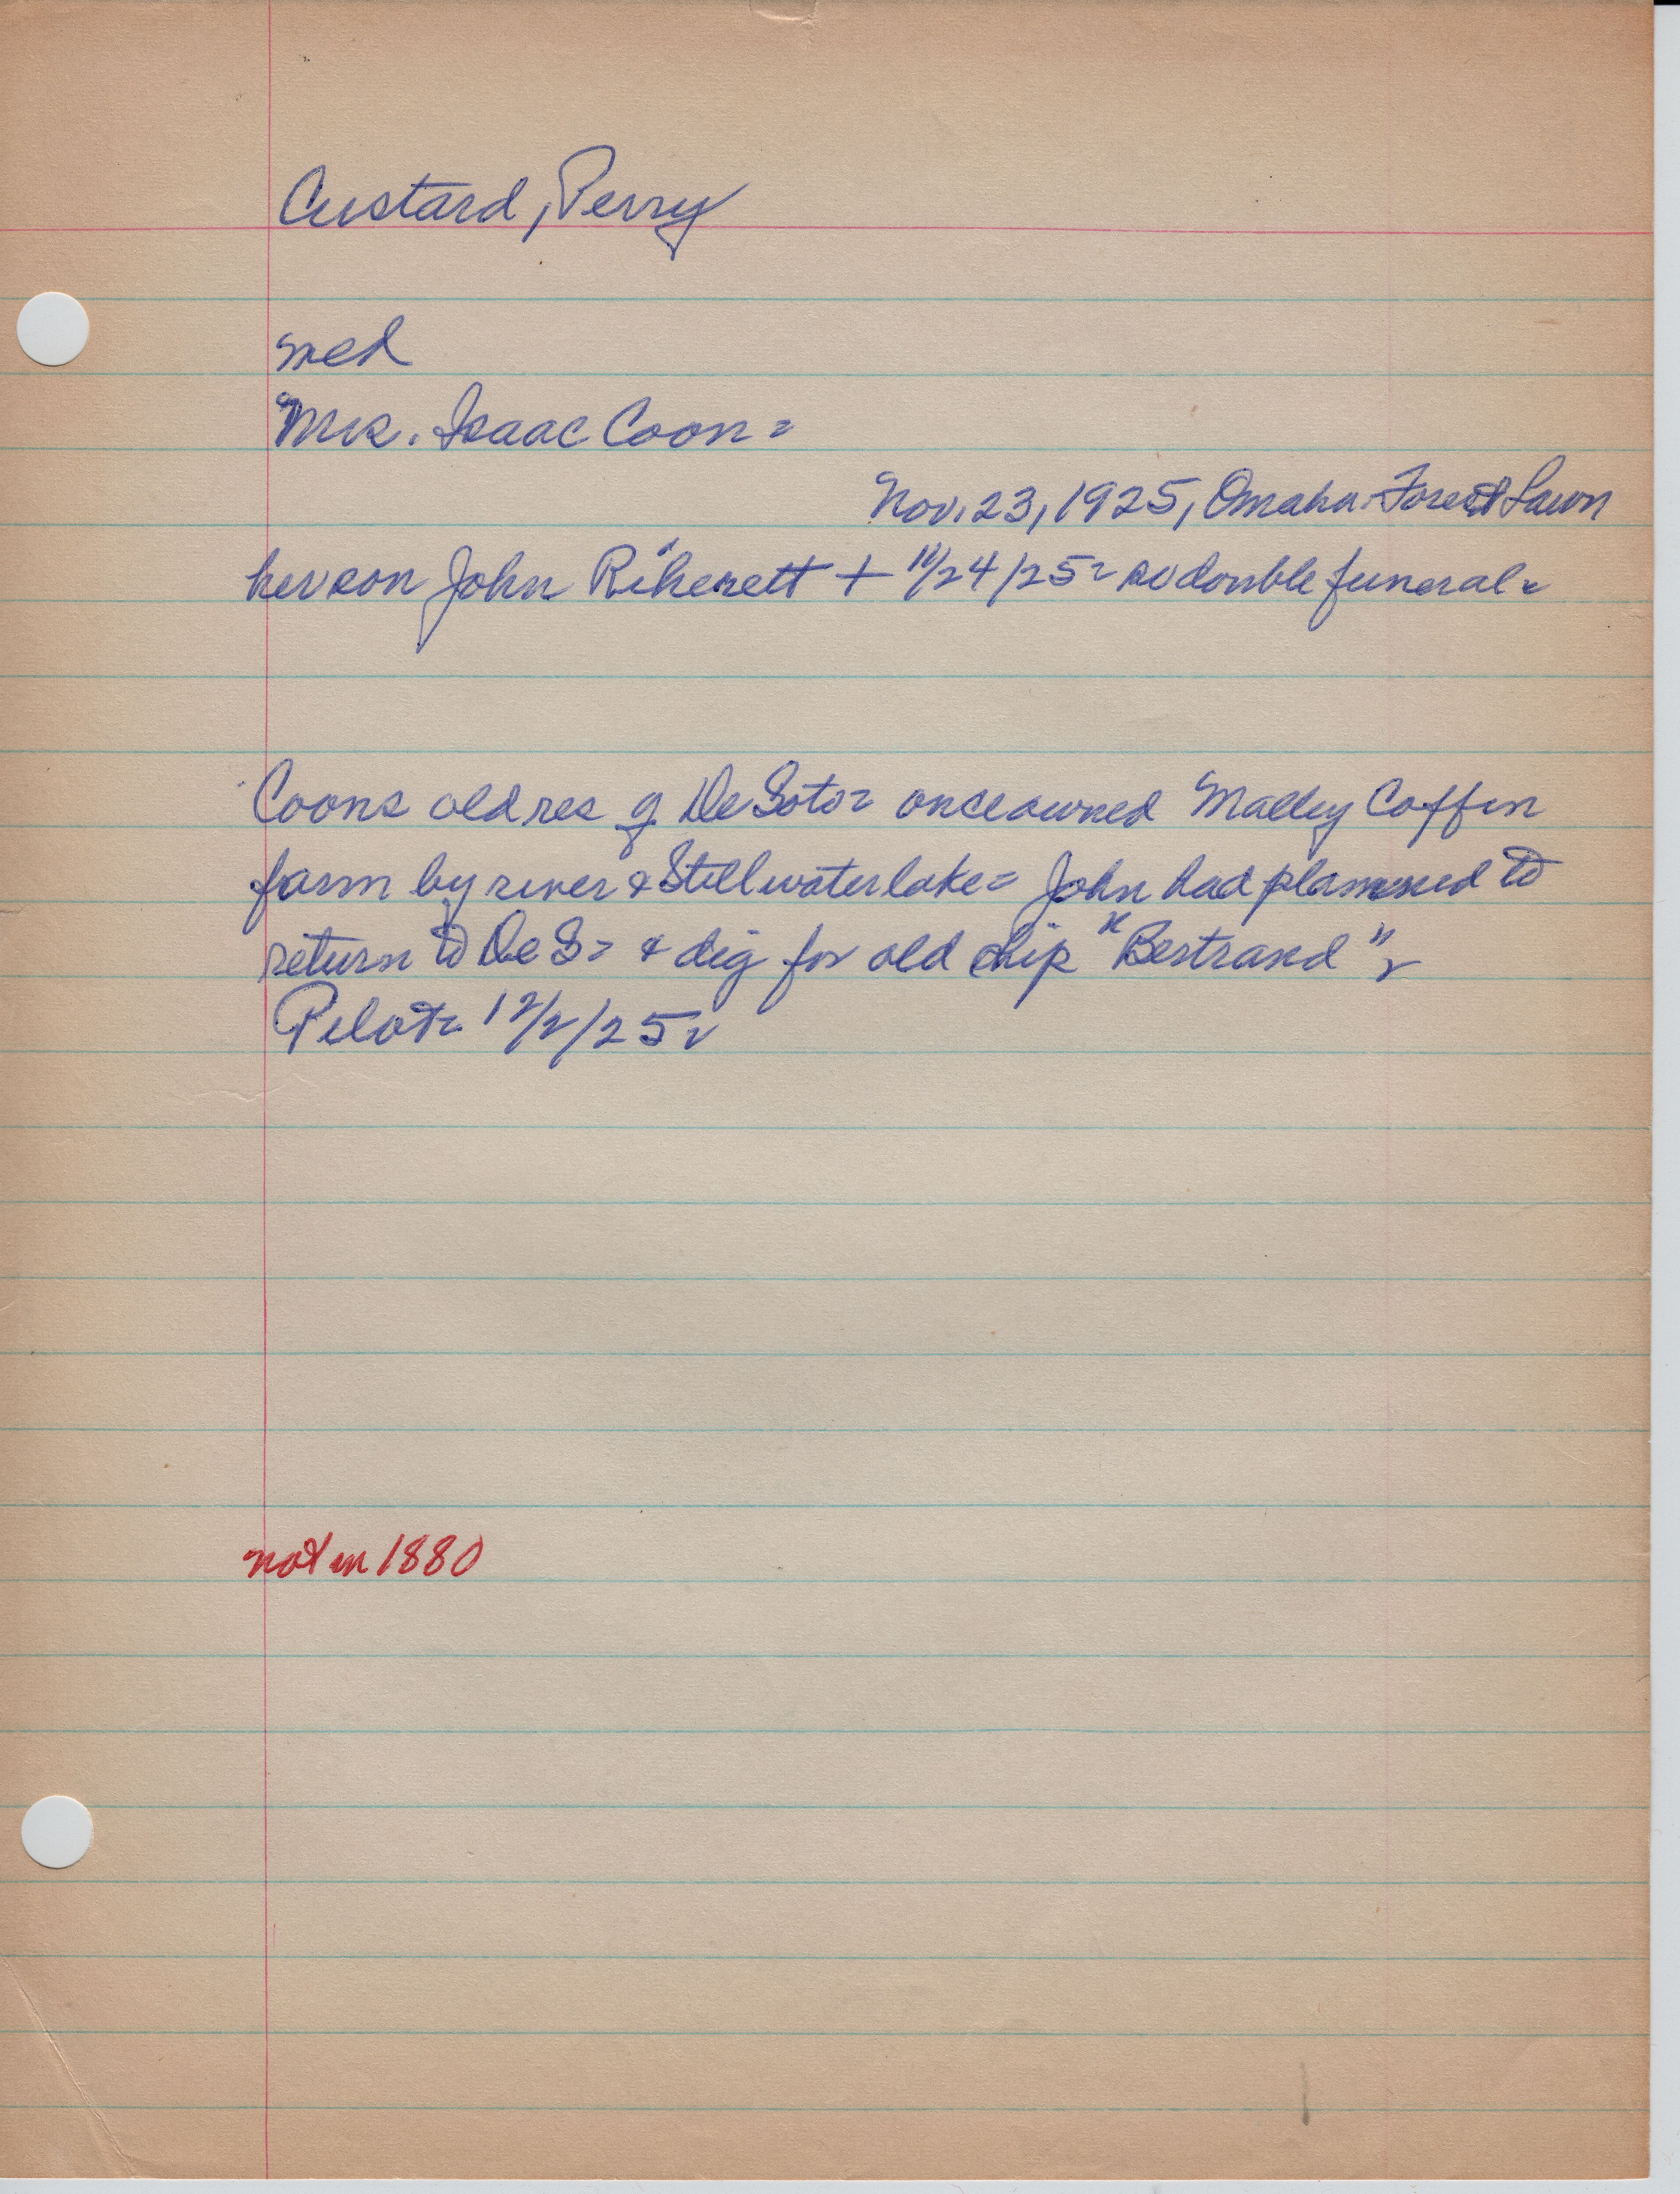 Custard, Perry
med
Mrs. Isaac Coon =
Nov. 23, 1925, Omaha-Forest Lawn
her son John + 11/24/25 = so double funeral =
Coons old res of De Soto = once owned Malley Coffin
farm by river & Stillwater lake = John had planned to
return to De S = & dig for old ship "Bertrand" =
Pilot = 12/2/25 =
not in 1880